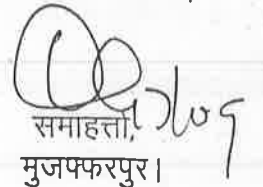 समाहर्त्ता,
मुजफ्फरपुर।